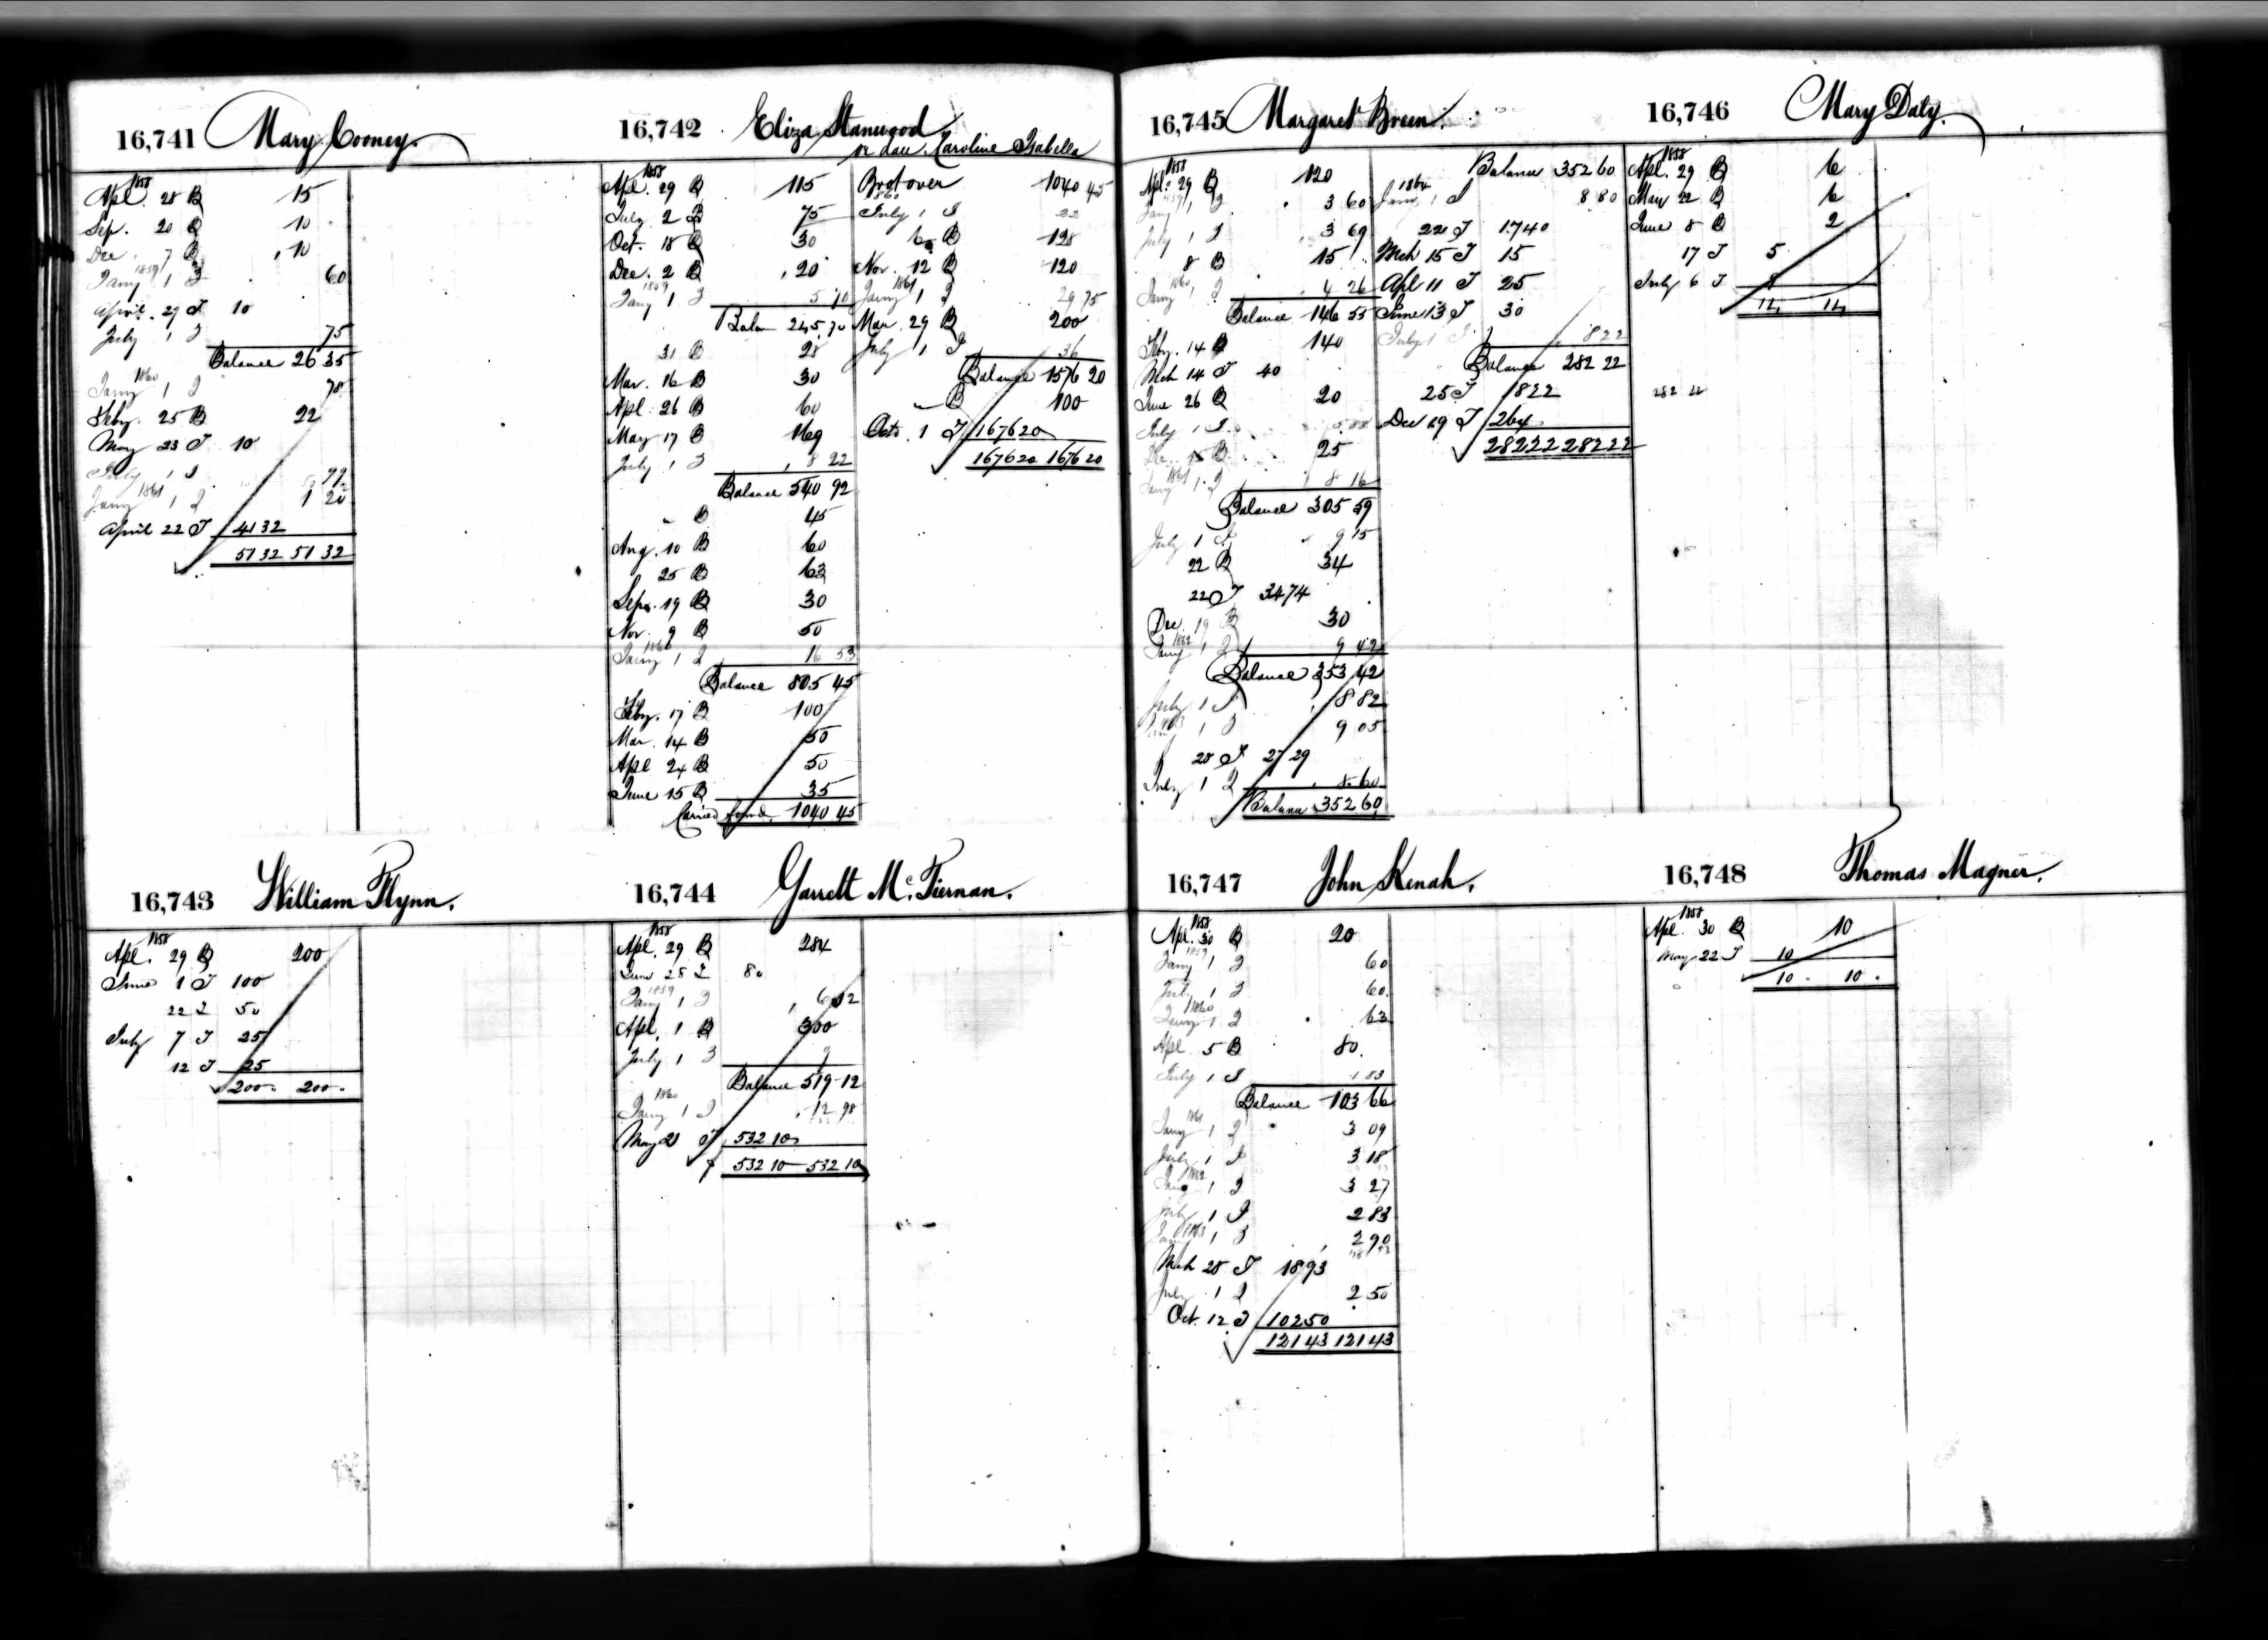 16,741 Mary Cooney.
1858
Apl. 28 B 15
Sep. 20 B 10
Dec. 7 B 10
1859
Jany 1 I 60
April. 27 T 10
July 1 I 75
Balance 26 35
1860
Jany 1 I 78
Feby. 25 B 22
May 23 T 10
July 1 I 99
1861
Jany 1 I 1 20
April 22 T 41 32
51 32 51 32
16,742 Eliza Stanwood
or dau. Caroline Isabella
1858
Apl. 29 B 115
July 2 B 75
Oct. 18 B 30
Dec. 2 B 20
1859
Jany 1 I 5 70
Balan 245 70
31 B 28
Mar. 16 B 30
Apl. 26 B 60
May 17 B 169
July 1 I 8 22
Balance 540 92
" B 45
Aug. 10 B 60
25 B 63
Sepr. 19 B 30
Nov. 9 B 50
1860
Jany 1 I 16 53
Balance 805 45
Feby. 17 B 100
Mar. 14 B 50
Apl 24 B 50
June 15 B 35
Carried forwd. 1040 45
Brot over 1040 45
1860
July 1 I 22
6 B 128
Nov. 12 B 120
1861
Jany 1 I 29 75
Mar. 29 B 200
July 1 I 36
Balance 1576 20
" B 100
Octo. 1 T 1676 20
1676 20 1676 20
16,743 William Flynn.
1858
Apl. 29 B 200
June 1 T 100
22 T 50
July 7 T 25
12 T 25
200 200
16,744 Garrett McTiernan.
1858
Apl. 29 B 284
June 28 T 80
1859
Jany 1 I 6 12
Apl. 1 B 300
July 1 I 9
Balance 519 12
1860
Jany 1 I 12 98
May 21 T 532 10
532 10 532 10
16,745 Margaret Breen.
1858
Apl. 29 B 120
1859
Jany 1 I 3 60
July 1 I 3 69
8 B 15
1860
Jany 1 I 4 26
Balance 146 55
Feby. 14 B 140
Mch 14 T 40
June 26 B 20
July 1 I 5 88
Dec. 15 B 25
1861
Jany 1 I 8 16
Balance 305 59
July 1 I 9 15
22 B 34
22 T 34 74
Dec. 19 B 30
1862
Jany 1 I 9 42
Balance 353 42
July 1 I 8 82
1863
Jany 1 I 9 05
28 T 27 29
July 1 I 8 60
Balance 352 60
Balance 352 60
1864
Jany 1 I 8 80
22 T 17 40
Mch 15 T 15
Apl 11 T 25
June 13 T 30
July 1 I 8 22
Balance 282 22
25 T 18 22
Dec 19 T 264
282 22 282 22
16,746 Mary Daly.
1858
Apl. 29 B 6
May 22 B 6
June 8 B 2
17 T 5
July 6 T 9
14 14
282 22
16,747 John Kenah.
1858
Apl. 30 B 20
1859
Jany 1 I 60
July 1 I 60
1860
Jany 1 I 63
Apl. 5 B 80
July 1 I 1 83
Balance 103 66
1861
Jany 1 I 3 09
July 1 I 3 18
1862
Jany 1 I 3 27
July 1 I 2 83
1863
Jany 1 I 2 90
Mch 28 T 18 93
July 1 I 2 50
Oct. 12 T 102 50
121 43 121 43
16,748 Thomas Magner.
1858
Apl. 30 B 10
May 22 T 10
10 10